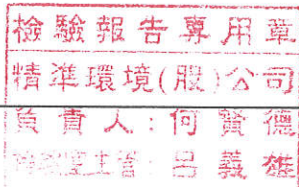 檢驗報告專用章
精準環境(股)公司
負責人:何賢德
主管:呂義雄